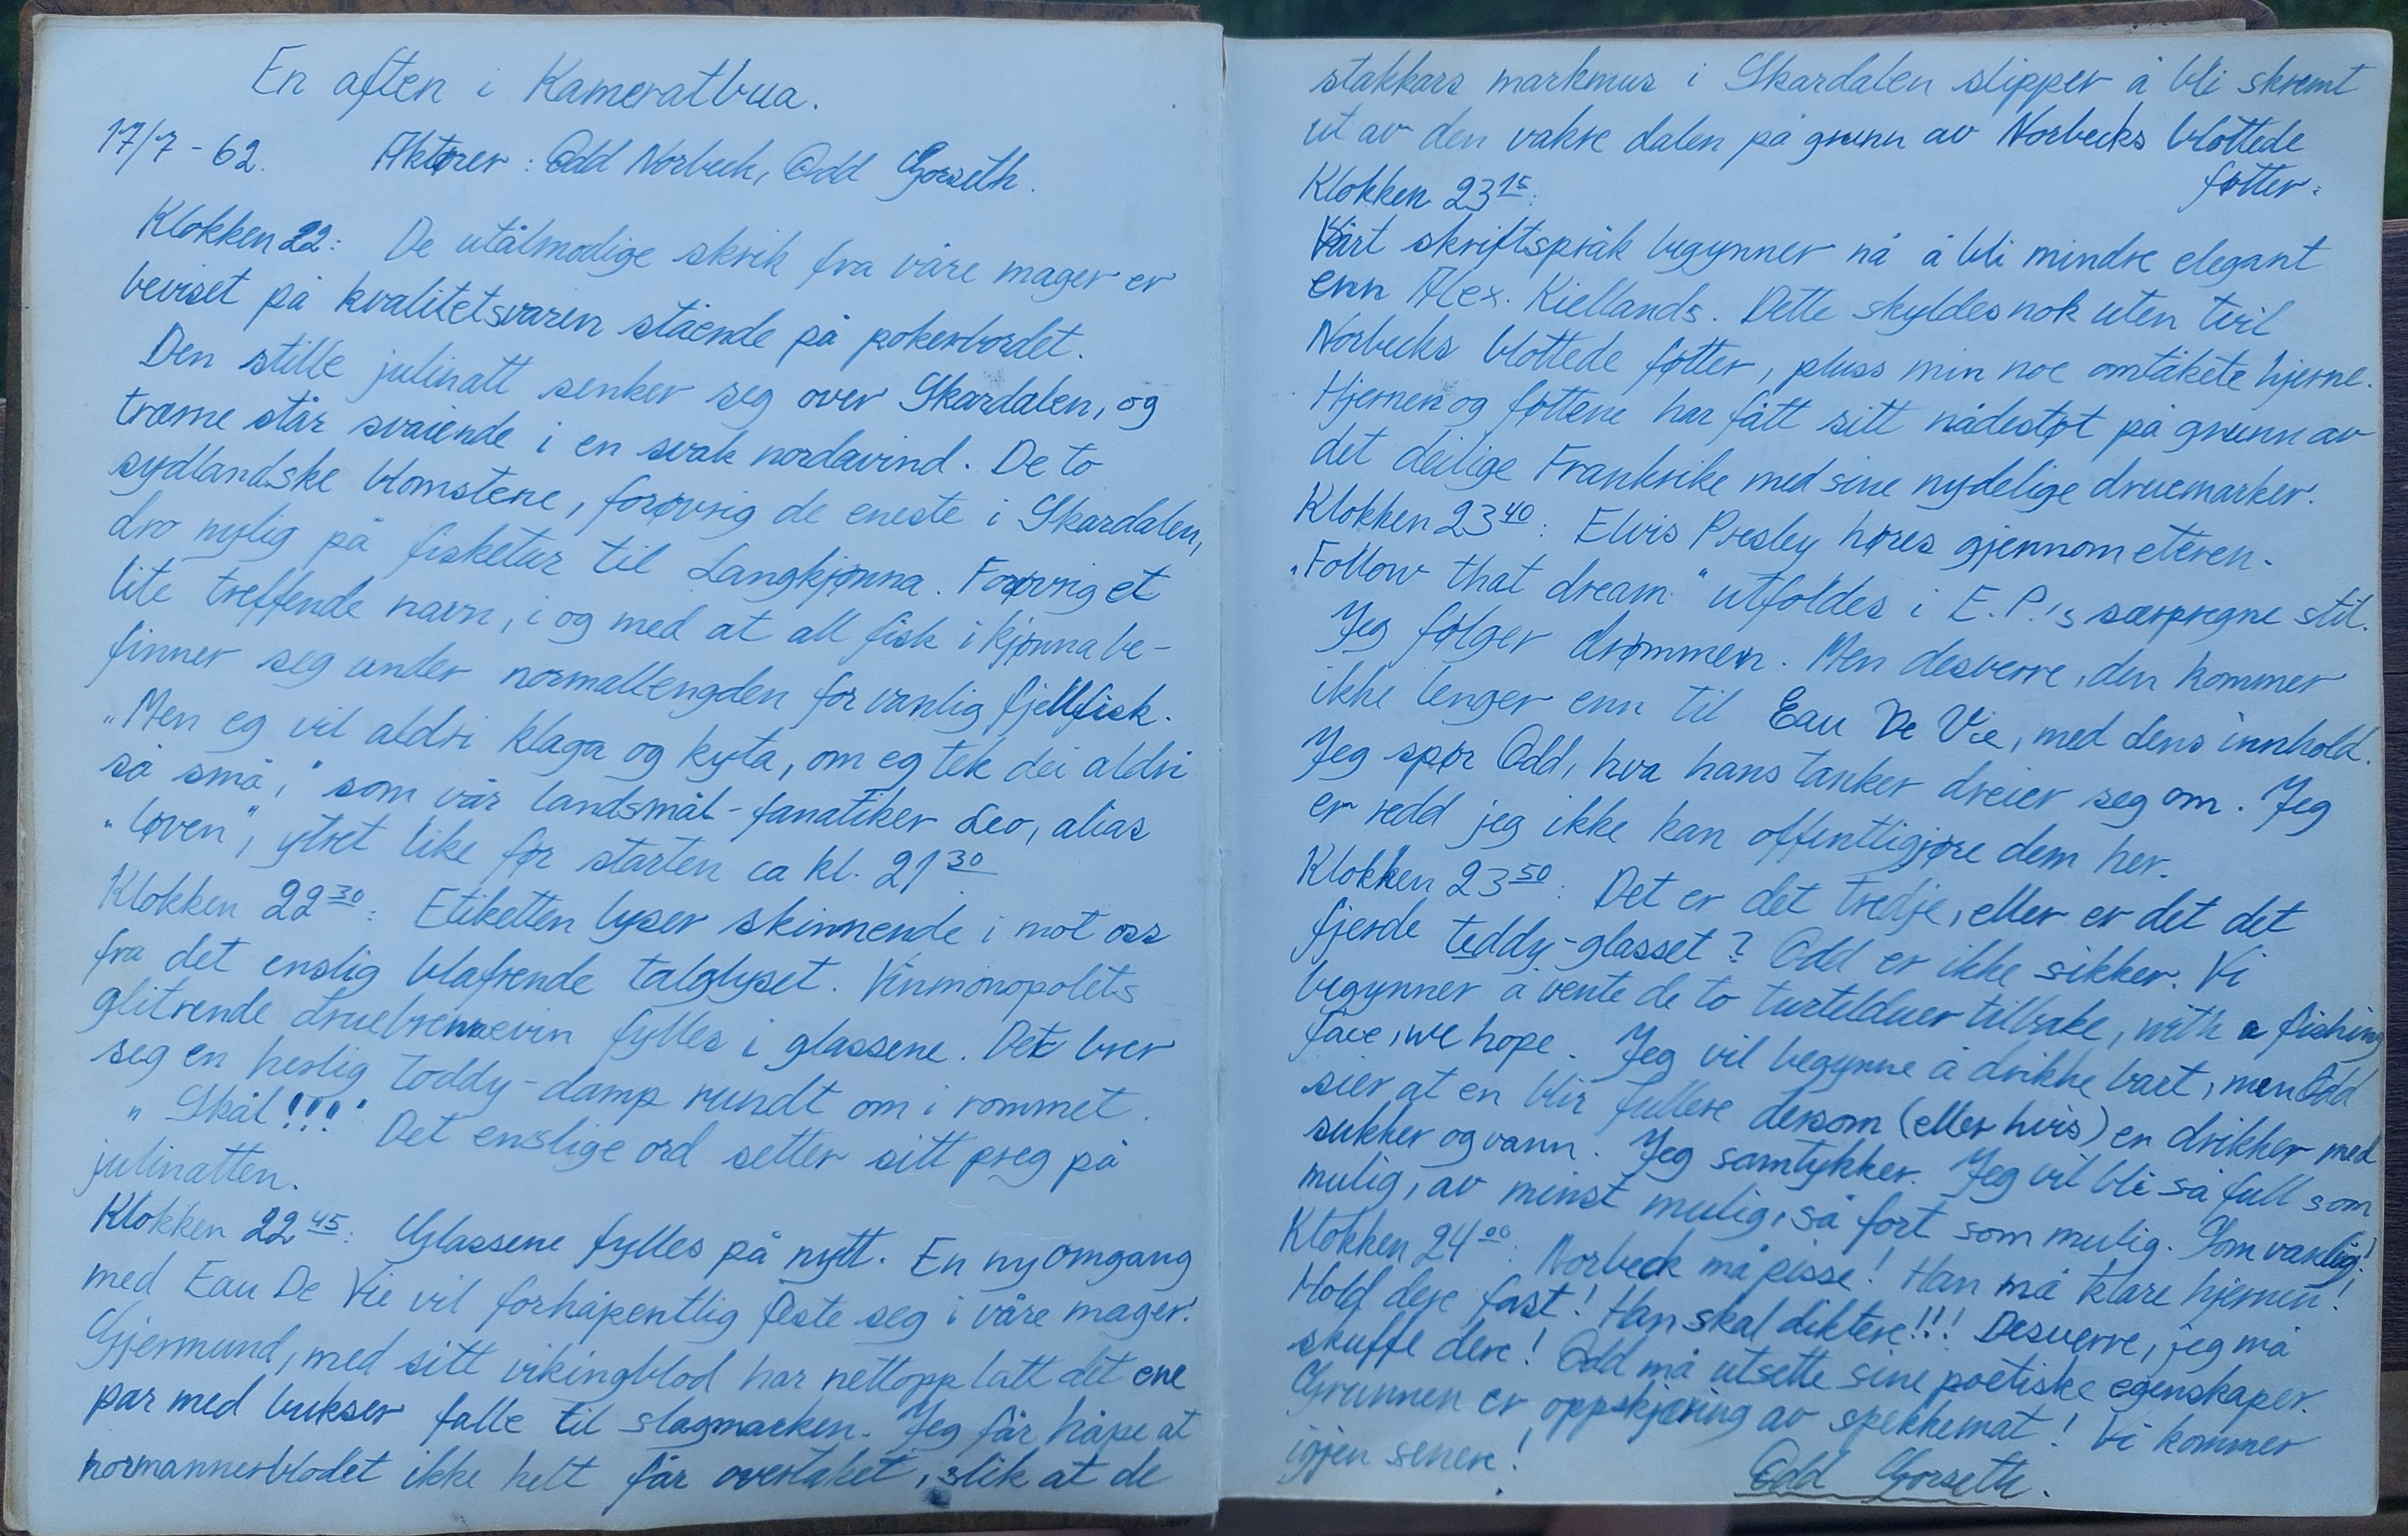 En aften i Kameratbua.
17/7 - 62. Aktører: Odd Norbeck, Odd Gorseth.
Klokken 22: De utålmodige skrik fra våre mager er
beviset på kvalitetsvaren stående på pokerbordet.
Den stille julinatt senker seg over Skardalen, og
trærne står svaiende i en svak nordavind. De to
sydlandske blomstene, forøvrig de eneste i Skardalen,
dro nylig på fisketur til Langkjønna. Forøvrig et
lite treffende navn, i og med at all fisk i kjønna be-
finner seg under normallengden for vanlig fjellfisk.
"Men eg vil aldri klaga og kyta, om eg tek dei aldri
så små," som vår landsmål-fanatiker Leo, alias
"løven", ytret like før starten ca kl. 21 30
Klokken 22 30: Etiketten lyser skinnende i mot oss
fra det enslig blafrende talglyset. Vinmonopolets
glitrende druebrennevin fylles i glassene. Det brer
seg en herlig toddy-damp rundt om i rommet.
"Skål!!!" Det enslige ord setter sitt preg på
julinatten.
Klokken 22 45: Glassene fylles på nytt. En ny omgang
med Eau De Vie vil forhåpentlig feste seg i våre mager.
Gjermund, med sitt vikingblod har nettopp latt det ene
par med bukser falle til slagmarken. Jeg får håpe at
normannerblodet ikke helt får overtaket, slik at de
stakkars markmus i Skardalen slipper å bli skremt
ut av den vakre dalen på grunn av Norbecks blottede
føtter.
Klokken 23 15:
Vårt skriftspråk begynner nå å bli mindre elegant
enn Alex. Kiellands. Dette skyldes nok uten tvil
Norbecks blottede føtter, pluss min noe omtåkete hjerne.
Hjernen og føttene har fått sitt nådestøt på grunn av
det deilige Frankrike med sine nydelige druemarker.
Klokken 23 40: Elvis Presley høres gjennom eteren.
"Follow that dream" utfoldes i E.P.'s særpregne stil.
Jeg følger drømmen. Men desverre, den kommer
ikke lenger enn til Eau De Vie, med dens innhold.
Jeg spør Odd, hva hans tanker dreier seg om. Jeg
er redd jeg ikke kan offentligjøre dem her.
Klokken 23 50: Det er det tredje, eller er det det
fjerde teddy-glasset? Odd er ikke sikker. Vi
begynner å vente de to turtelduer tilbake, with a fishing
face, we hope. Jeg vil begynne å drikke bart, men Odd
sier at en blir fullere dersom (eller hvis) en drikker med
sukker og vann. Jeg samtykker. Jeg vil bli så full som
mulig, av minst mulig, så fort som mulig. Som vanlig!
Klokken 24 00: Norbeck må pisse! Han må klare hjernen!
Hold dere fast! Han skal diktere!!! Desverre, jeg må
skuffe dere! Odd må utsette sine poetiske egenskaper.
Grunnen er oppskjæring av spekkemat! Vi kommer
igjen senere!
Odd Gorseth.